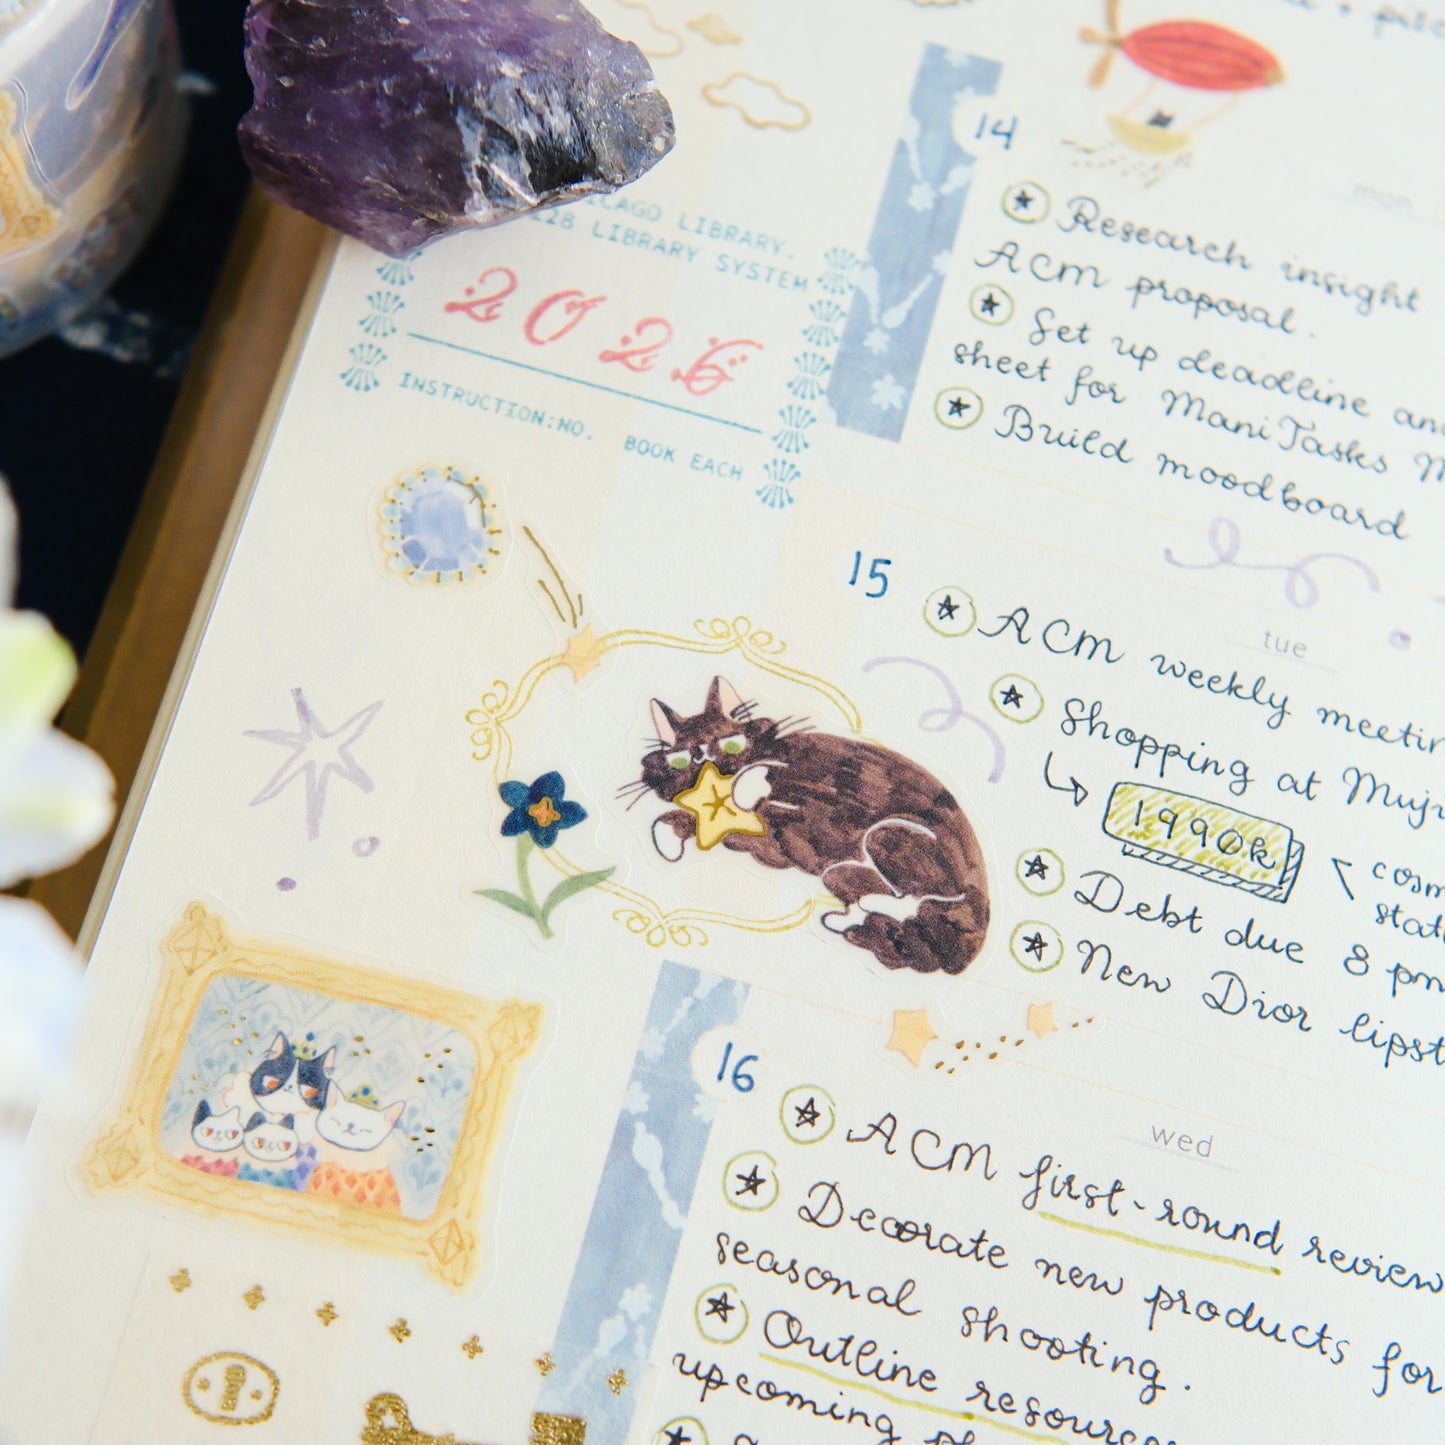 LIBRARY.
LIBRARY SYSTEM
2026
INSTRUCTION:NO. BOOK EACH
14
mon
Research insight
ACM proposal.
Set up deadline
sheet for ManiTasks
Build moodboard
15
tue
ACM weekly
Shopping at Muji
1990k
Debt due 8 pm
New Dior
16
wed
ACM first-round review
Decorate new products for
seasonal shooting.
Outline
upcoming